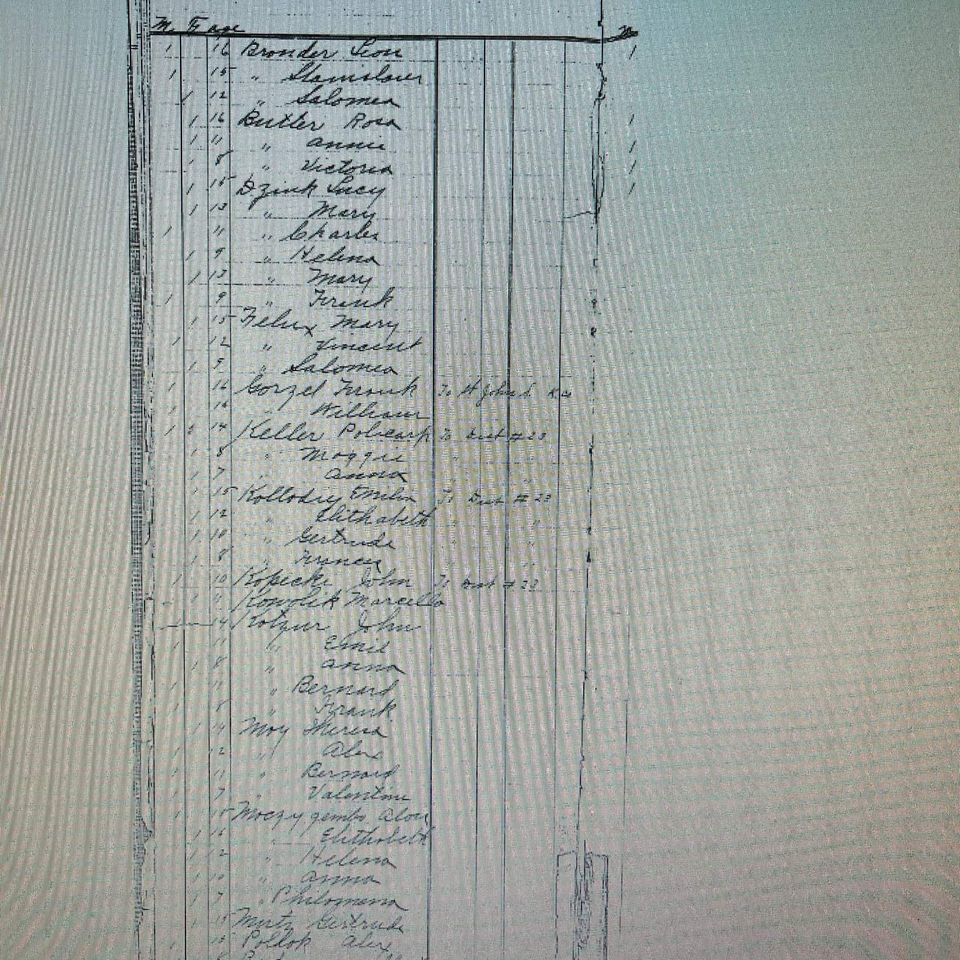 M. F. age M
1 16 Bronder Leon 1
1 15 " Stanislaus
1 12 " Salomea
1 16 Butler Rosa 1
1 11 " Annie 1
1 8 " Victoria 1
1 15 Dziuk Lucy 1
1 13 " Mary
1 11 " Charles
1 9 " Helena
1 13 " Mary
1 9 " Frank
1 15 Felux Mary
1 12 " Vincent
1 9 " Salomea
1 16 Gorzel Frank To St John S.
1 " William
1 14 Keller Policarp To Dist #23
1 8 " Maggie " "
1 7 " Anna " "
1 15 Kollodzy Emilia To Dist #23
1 12 " Elithabeth " "
1 10 " Gertrude " "
1 8 " Frances " "
1 10 Kopecki John To Dist #23
1 11 Kowolik Marcella
14 Kotzur John
1 11 " Emil
1 8 " Anna
1 11 " Bernard
1 8 " Frank
1 14 Moy Theresa
1 12 " Alex
1 11 " Bernard
1 7 " Valentine
1 15 Moczygemba Alois
1 " Elithobeth
1 12 " Helena
1 10 " Anna
1 7 " Philomena
1 15 Mutz Gertrude
1 15 Poldok Alex